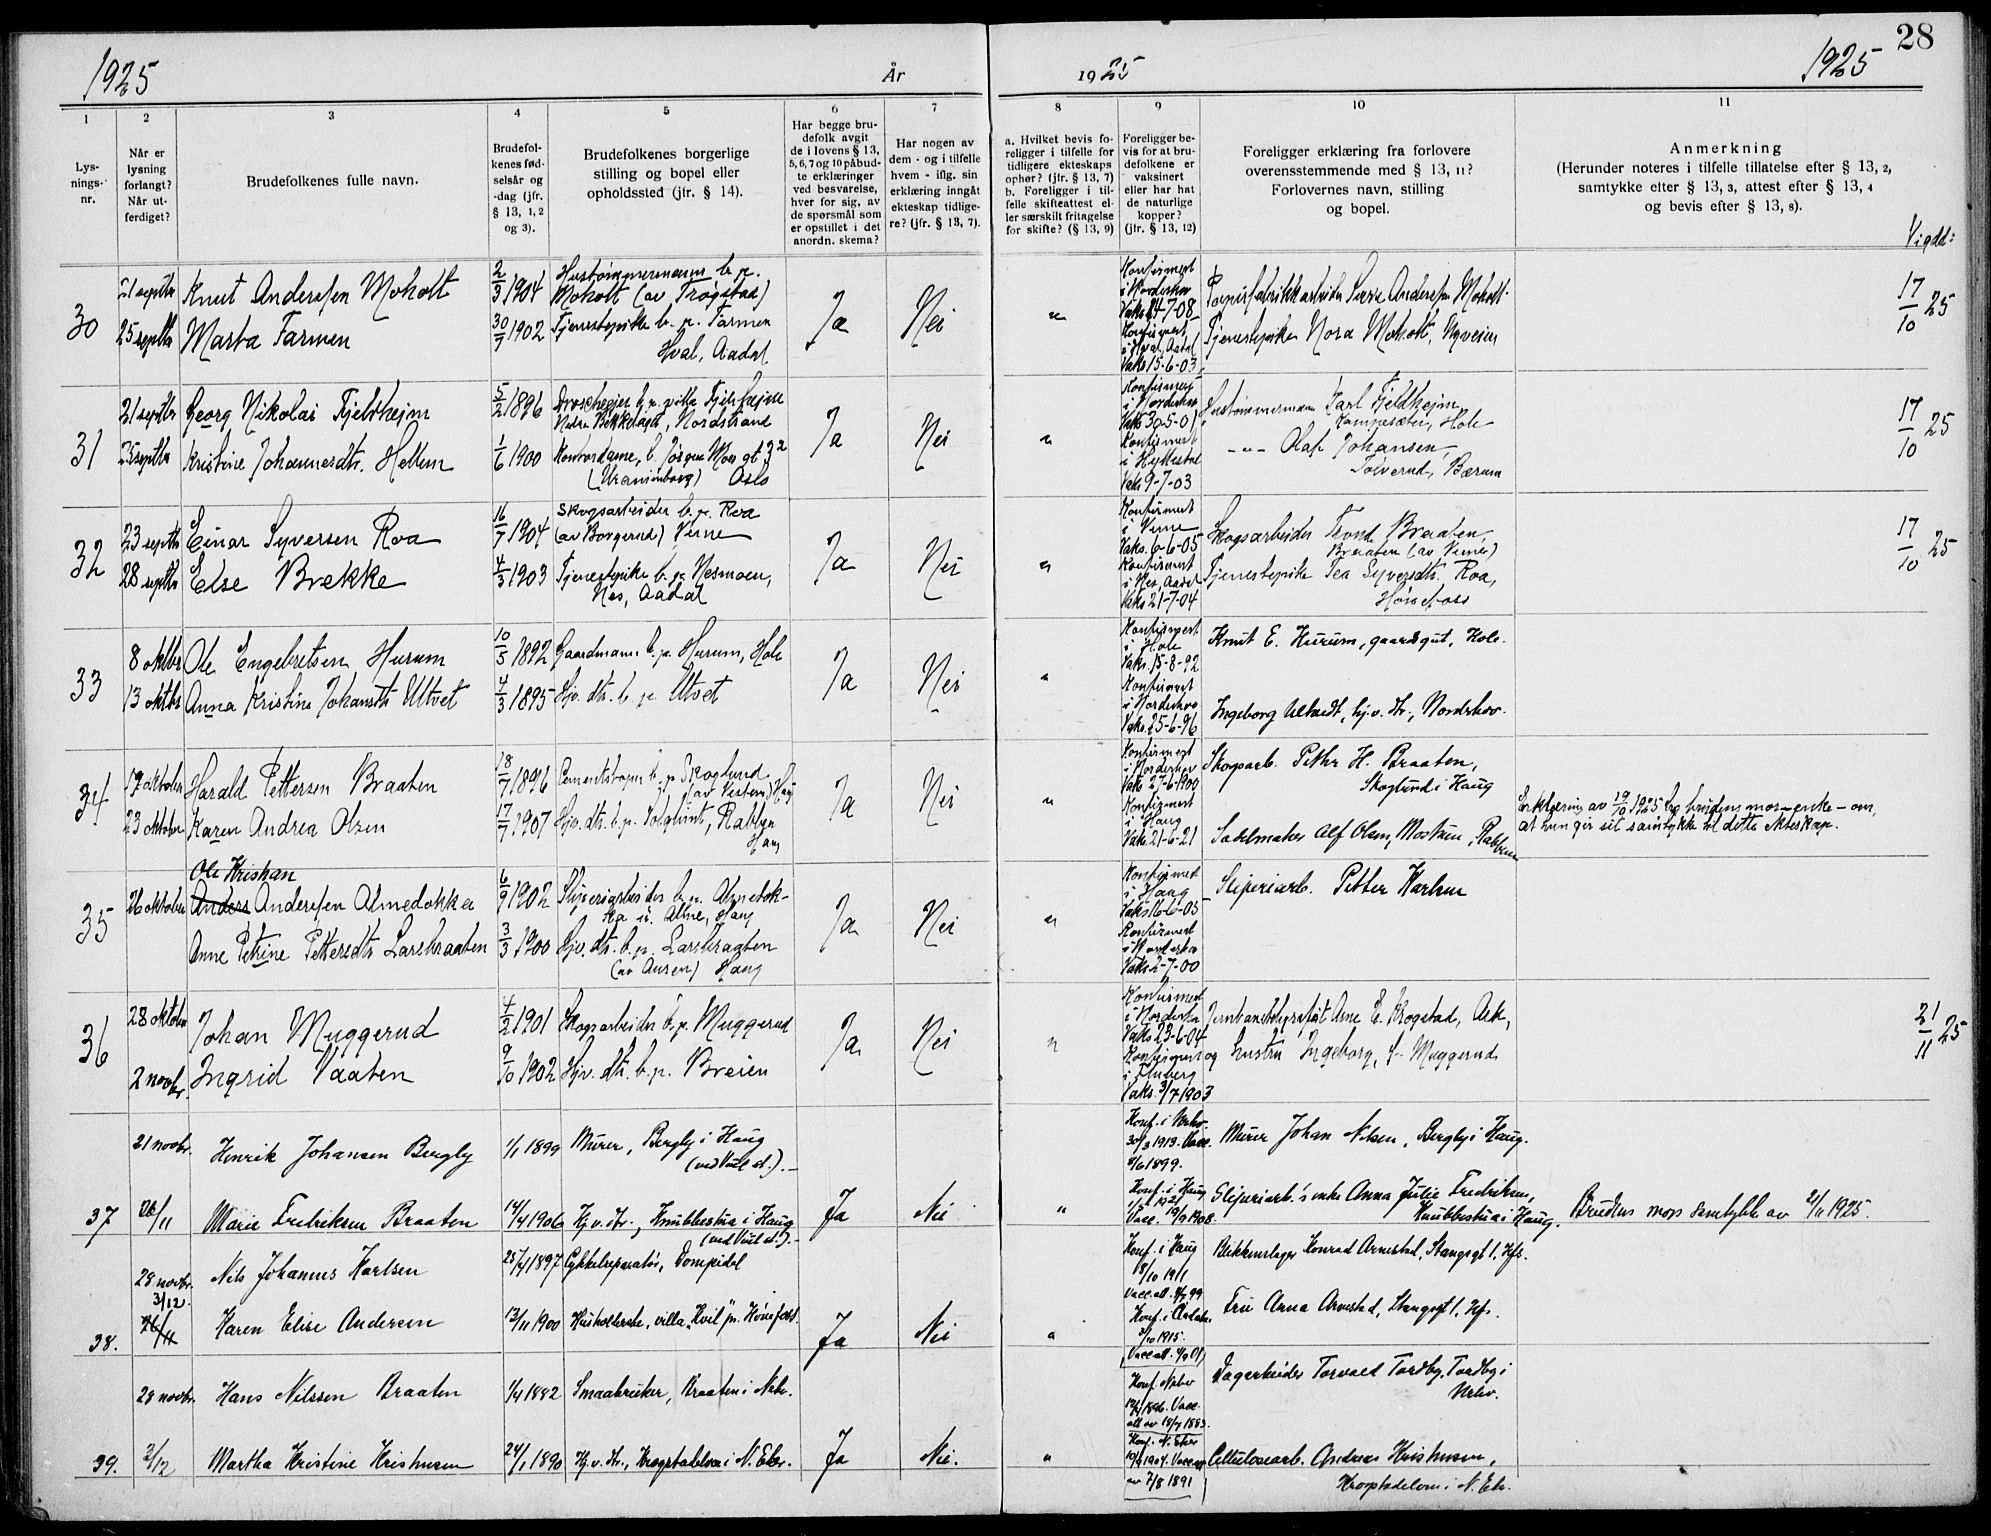 28
1925
År
1925
1925
1
2
3
4
5
6
7
8
9
10
11
Lys-
nings-
nr.
Når er
lysning
forlangt?
Når ut-
ferdiget?
Brudefolkenes fulle navn.
Brudefol-
kenes fød-
selsår og
-dag (jfr.
§ 13, 1, 2
og 3).
Brudefolkenes borgerlige
stilling og bopel eller
opholdssted (jfr. § 14).
Har begge bru-
defolk avgit
de i lovens § 13,
5, 6, 7 og 10 påbud-
te erklæringer
ved besvarelse,
hver for sig, av
de spørsmål som
er opstillet i det
anordn. skema?
Har nogen av
dem - og i tilfelle
hvem - iflg. sin
erklæring inngåt
ekteskap tidlige-
re? (jfr. § 13, 7).
a. Hvilket bevis fo-
religger i tilfelle for
tidligere ekteskaps
ophør? (jfr. § 13, 7)
b. Foreligger i til-
felle skifteattest el-
ler særskilt fritagelse
for skifte? (§ 13, 9)
Foreligger be-
vis for at bru-
defolkene er
vaksinert
eller har hat
de naturlige
kopper?
(jfr. § 13, 12)
Foreligger erklæring fra forlovere
overensstemmende med § 13, 11?
Forlovernes navn, stilling
og bopel.
Anmerkning
(Herunder noteres i tilfelle tillatelse efter § 13, 2,
samtykke efter § 13, 3, attest efter § 13, 4
og bevis efter § 13, 8).
Vigd:
30
21 septbr
25 septbr
Knut Andersen Moholt
Marta Tarmen
2/3 1904
30/7 1902
Hustømmermann b. p.
Moholt (av Trøgstad)
Tjenestepike b. p. Tarmen
Hval, Aadal.
Ja
Nei
"
Konfirmert
i Norderhov
Vaks. 24-7-08
Konfirmert
i Hval, Aadal
Vaks 15-6-03
Papirfabrikkarbeider Andersen Moholt
Tjenestepike Nora Moholt, Nyveien
17/10 25
31
21 septbr
25 septbr
Georg Nikolai Fjeldheim
Kristine Johannesdtr. Hellem
5/2 1896
1/6 1900
Droscheeier b. p. villa Fjeldheim
Nedre Bekkelaget, Nordstrand
Kontordame, b. Jørgen Moes gt 3²
(Uranienborg) Oslo
Ja
Nei
"
Konfirmert
i Norderhov
Vaks 30-5-01
Konfirmert
i Hyllestad
Vaks 9-7-03
Hustømmermann Karl Fjeldheim
Hole
-"- Olaf Johansen,
Bærum
17/10 25
32
23 septbr
28 septbr
Einar Syversen Roa
Else Brekke
16/7 1904
4/3 1903
Skogsarbeider b. p. Roa
(av Borgerud) Viune
Tjenestepike b. p. Nesmoen,
Nes, Aadal
Ja
Nei
"
Konfirmert
i Viune
Vaks. 6-6-05
Konfirmert
i Nes, Aadal
Vaks 21-7-04
Skogsarbeider Trond Braaten,
Braaten (av Viune)
Tjenestepike Tea Syversdtr. Roa,
Hønefoss
17/10 25
33
8 oktbr
13 oktbr
Ole Engebretsen Hurum
Anna Kristine Johansdtr Ultvet
10/5 1892
4/3 1895
Gaardmann b. p. Hurum, Hole
Hjv. dtr. b. p. Utvet
Ja
Nei
"
Konfirmert
i Hole
Vaks. 15-8-92
Konfirmert
i Norderhov
Vaks. 25-6-96
Knut E. Hurum, gaardsgut, Hole.
Ingeborg Ultvedt, hj. v. dtr., Norderhov.
34
19 oktober
23 oktober
Harald Pettersen Braaten
Karen Andrea Olsen
18/7 1896
17/7 1907
b. p. Skoglund
(av Vestern) Haug
Hjv. dtr. b. p. Solglimt, Rabben
Haug
Ja
Nei
"
Konfirmert
i Norderhov
Vaks 27-6-1900
Konfirmert
i Haug
Vaks. 21-6-21
Skogsarb. Petter H. Braaten,
Skoglund i Haug
Sadelmaker Alf Olsen, Rabben
Erklæring av 19/10 1925 fra brudens mor - enke - om,
at hun gir sit samtykke til dette ekteskap.
35
26 oktober
Ole Kristian
Anders Andersen Almedokka
Anne Petrine Pettersdtr Larsbraaten
6/9 1902
3/3 1900
Sliperiarbeider b. p. Almedok-
ka u. Alme, Haug
Hjv. dtr. b. p. Larsbraaten
(av Aursen) Haug
Ja
Nei
"
Konfirmert
i Haug
Vaks 16-6-05
Konfirmert
i Norderhov
Vaks 2-7-00
Sliperiarb. Petter Karlsen
36
28 oktober
2 novbr.
Johan Muggerud
Ingrid Vaaten
4/2 1901
9/10 1902
Skogsarbeider b. p. Muggerud
Hjv. dtr. b. p. Breien
Ja
Nei
"
Konfirmert
i Norderhov
Vaks 23-6-04
Konfirmert
i Fluberg
Vaks. 3/7 1903
Jernbanetelegrafist Arne E. Krogstad, Ask,
og hustru Ingeborg, f. Muggerud
21/11 25
37
21 novbr.
26/11
Henrik Johansen Bergby
Marie Fredriksen Braaten
1/1 1899
14/4 1906
Murer, Bergby i Haug
(ved Veil st.).-
Hj. v. dtr., Knubbestua i Haug
(ved Veil st.).-
Ja
Nei
"
Konf. i Nrhov.
30/3 1913. Vacc.
8/6 1899.
Konf. i Haug
1921
Vacc. 19/9 1908.
Murer Johan Nilsen, Bergby i Haug.
Sliperiarb.'s enke Anna Julie Fredriksen,
Knubbestua i Haug.
Brudens mors samtykke av 21/11 1925.
38.
28 novbr.
3/12.
26/11
Nils Johannes Karlsen
Karen Elise Andersen
25/4 1897
13/11 1900
Cykkelreparatør, Dompidel
Husholderske, villa "Kvil" pr. Hønefoss.
Ja
Nei
"
Konf. i Haug
8/10 1911
Vacc. att. 99
Konf. i Aadalen
3/10 1915.
Vacc. att. 4/9 01
Blikkenslager Konrad Arnestad, Stangsgt 1, Hfs.
Fru Anna Arnestad, Stangsgt 1, Hfs.
39.
28 novbr.
3/12
Hans Nilssen Braaten
Martha Kristine Kristiansen
1/4 1882
24/1 1890
Smaabruker, Braaten i Nrhv.
Hj. v. dtr., Krogstadelven i N. Eker.
Ja
Nei.
"
Konf. Nrhov
1896. Vacc.
att av 18/7 1883.
Konf. N. Eker
1904. Vacc. att
av 7/8 1891
Dagarbeider Torvald Tordby, Tordby i
Nrhv.
Cellulosearb. Andreas Kristiansen,
Krogstadelven i N. Eker.